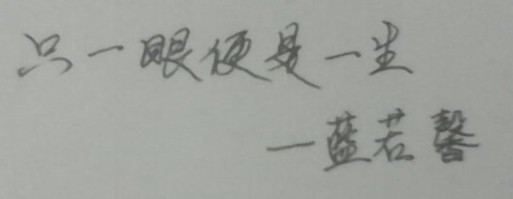 只一眼便是一生
—蓝若馨